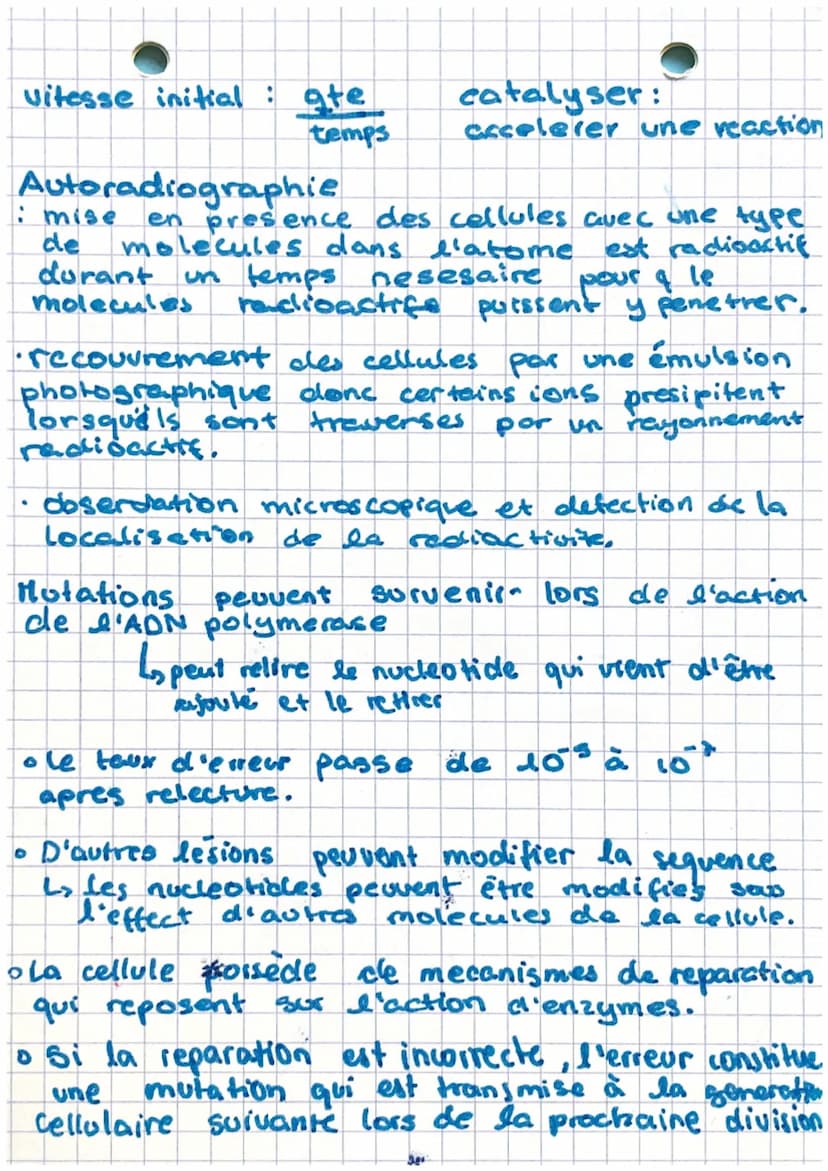 vitesse initial : qte / temps
catalyser :
accelerer une reaction
Autoradiographie
: mise en presence des cellules avec une type
de molecules dans l'atome est radioactif
durant un temps nesesaire pour q le
molecules radioactifs puissent y penetrer.
· recouvrement des cellules par une émulsion
photographique donc certains ions presipitent
lorsqu'ils sont traverses par un rayonnement
radioactif.
· observation microscopique et detection de la
localisation de la rediactivite.
Mutations peuvent survenir lors de l'action
de l'ADN polymerase
↳ peut relire le nucleotide qui vient d'être
ajouté et le retirer
• le taux d'erreur passe de 10⁻⁵ à 10⁻⁷
apres relecture.
• D'autres lésions peuvent modifier la sequence
↳ Les nucleotides peuvent être modifies sous
l'effect d'autres molecules de la cellule.
• La cellule possède de mecanismes de reparation
qui reposent sur l'action d'enzymes.
• Si la reparation est incorrecte, l'erreur constitue
une mutation qui est transmise à la generation
cellulaire suivante lors de la prochaine division